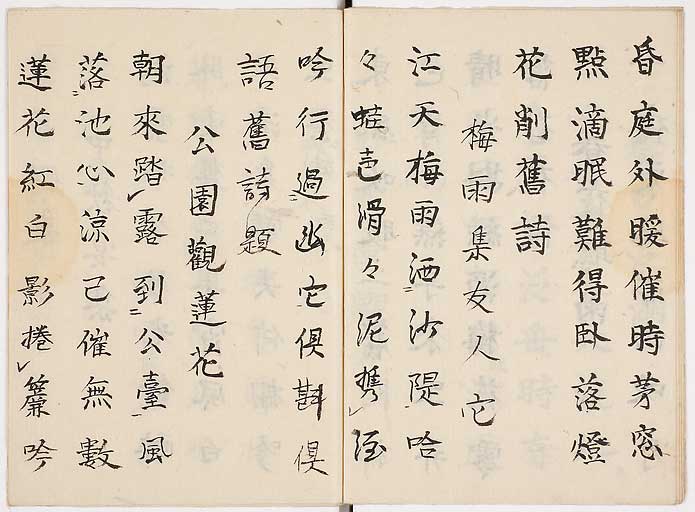 昏庭外暖催時茅窓
點滴眠難得臥落燈
花削舊詩
梅雨集友人宅
江天梅雨洒沙隄哈
々蛙声滑々泥携
吟行過幽宅倶斟倶
語舊詩題
公園觀蓮花
朝來踏露到公臺風
落池心涼已催無數
蓮花紅白影捲簾吟